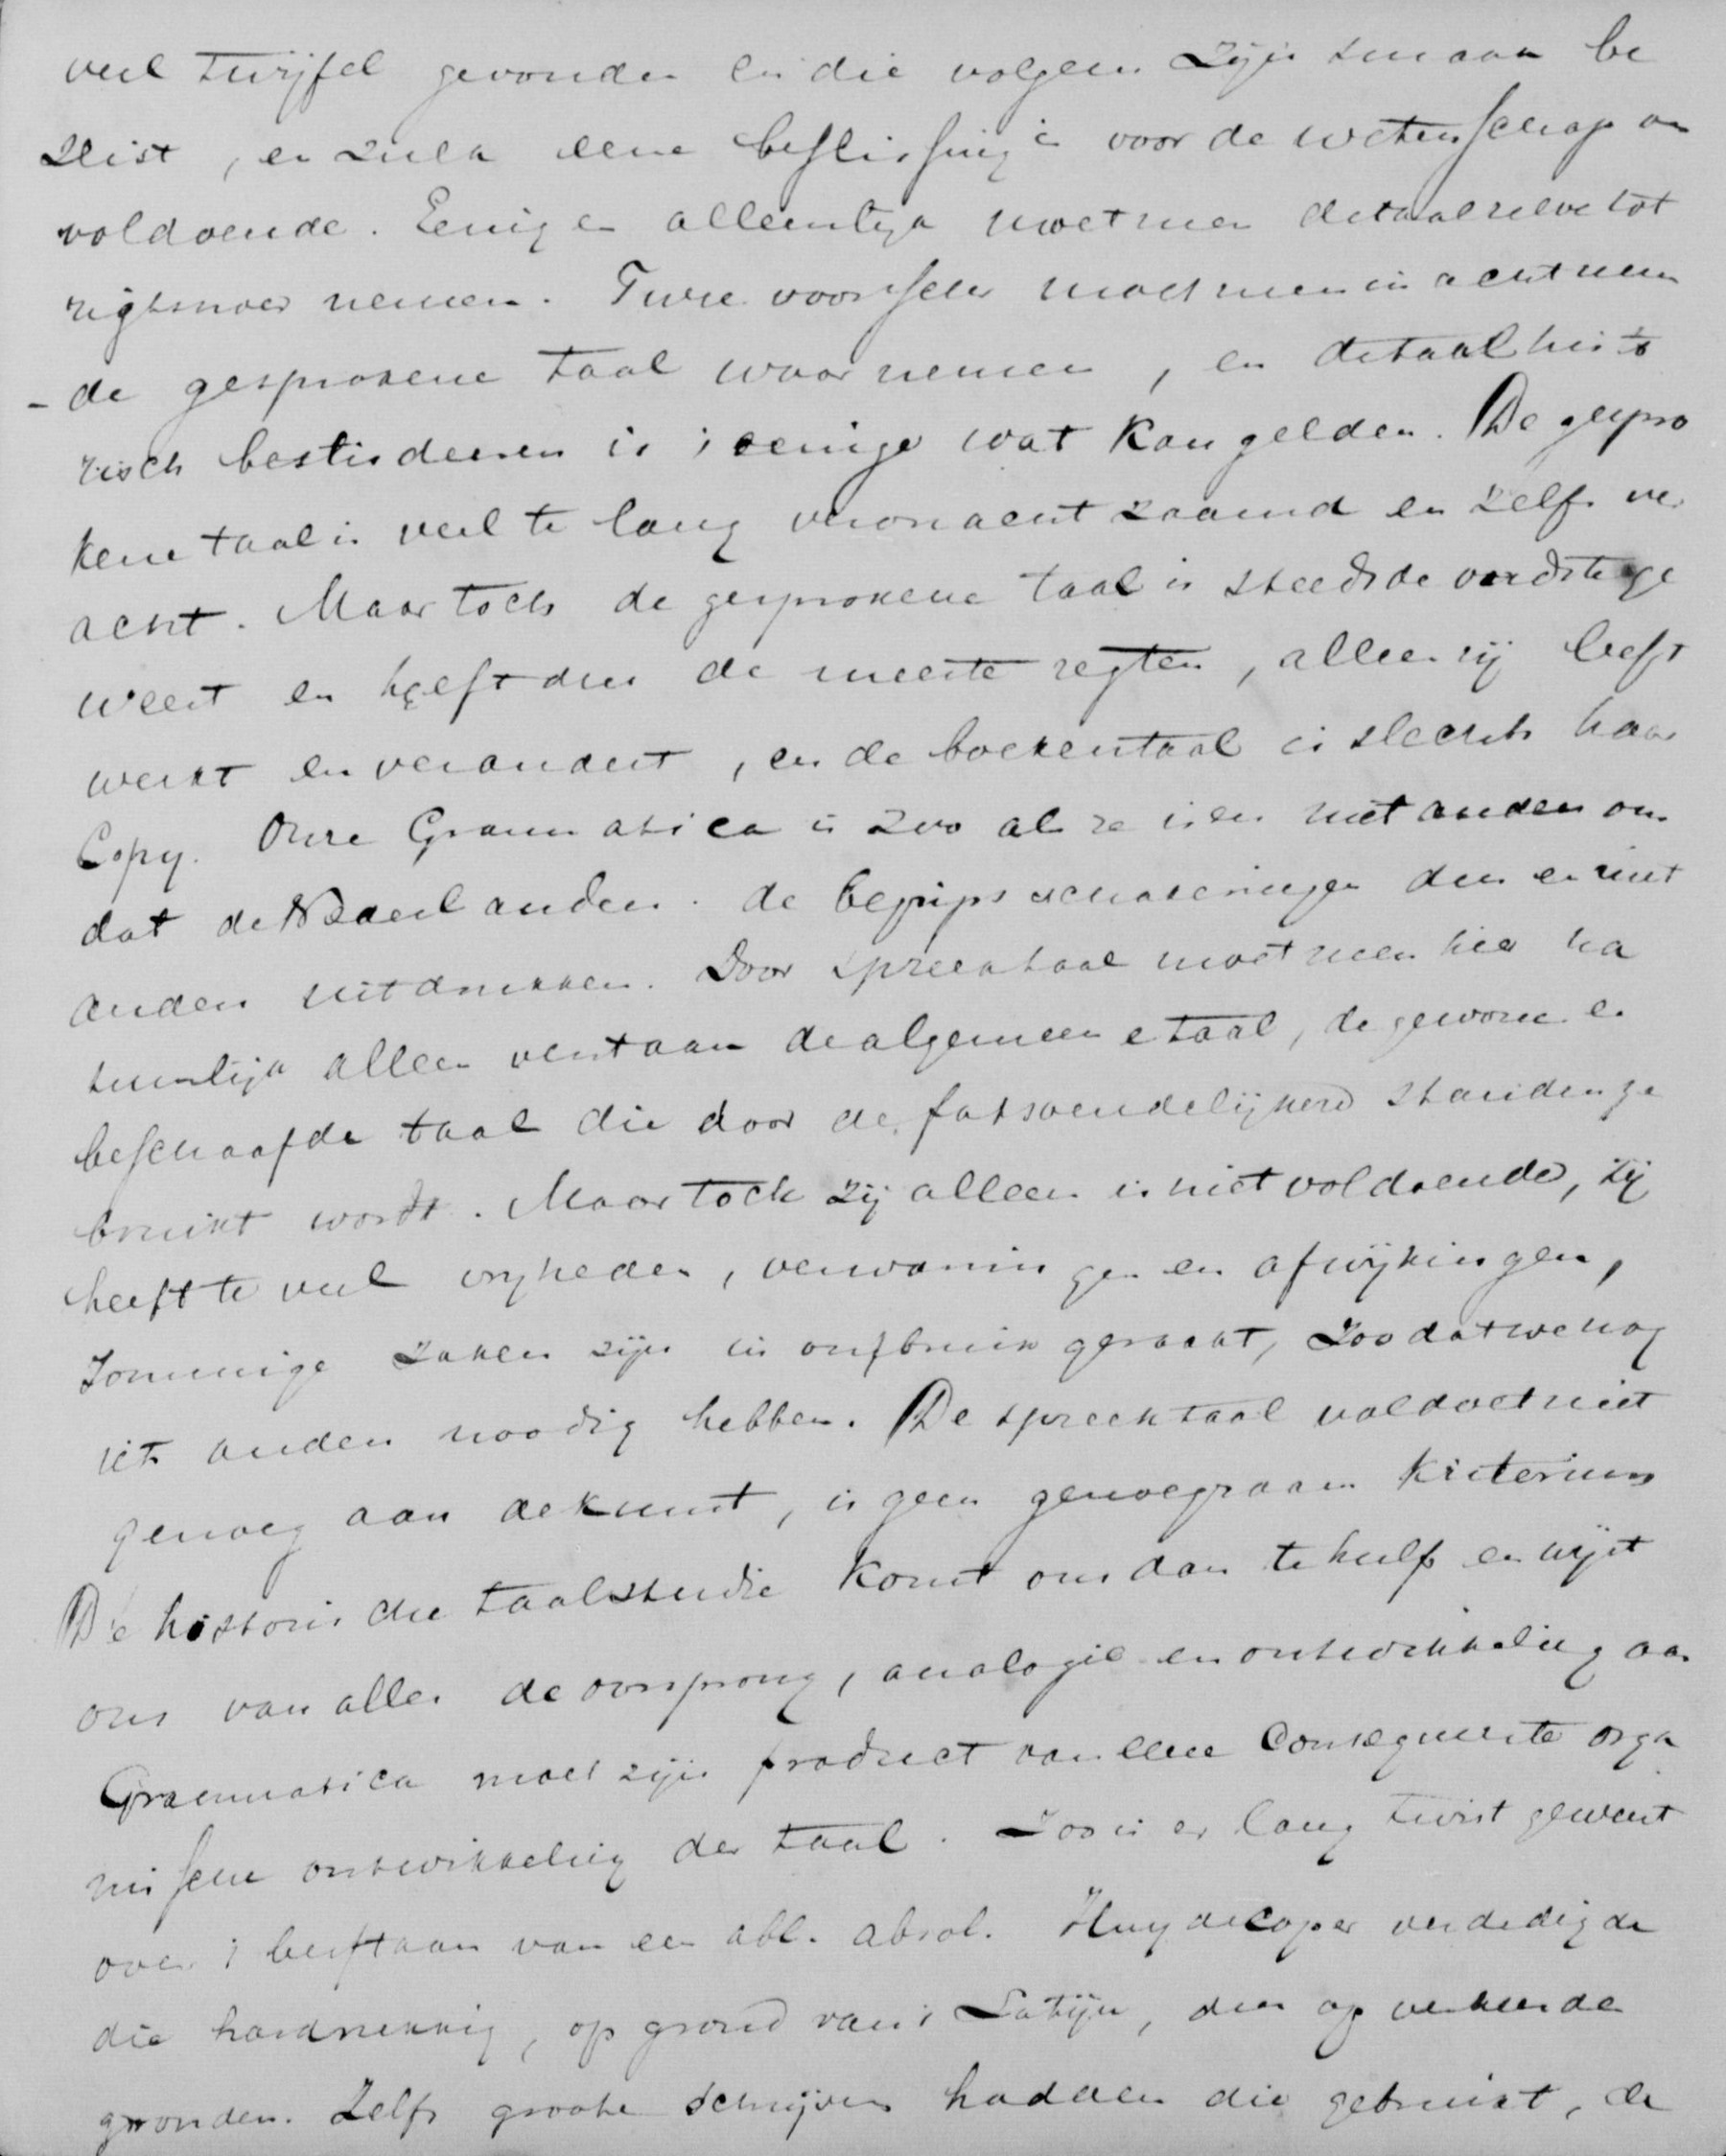 veel twijfel gevonden en die volgens zijn smaak be
slist, en zulk eene beslissing is voor de wetenschap on
voldoende. Eenig en alleenlijk moet men de taal zelve tot
rigtsnoer nemen. Twee voorschr moet men in acht nem
- de gesprokene taal waarnemen, en de taal histo
risch bestudeeren is 't eenige wat kan gelden. De gespro
kene taal is veel te lang veronachtzaamd en zelfs ver
acht. Maar toch de gesprokene taal is steeds de voedster ge
weest en heeft dus de meeste regten, alleen zij leeft
werkt en verandert, en de boekentaal is slechts haar
Copy. Onze Grammatica is zoo als ze is en niet anders om
dat de Nederlanders de begripsschakeringen dus en niet
anders uitdrukken. Door spreektaal moet men hier na
tuurlijk alleen verstaan de algemeene taal, de gewone en
beschaafde taal die door de fatsoendelijken standen ge
bruikt wordt. Maar toch zij alleen is niet voldoende, zij
heeft te veel vryheden, verwarringen en afwijkingen,
Sommige zaken zijn in onbruik geraakt, Zoodat we nog
iets anders noodig hebben. De spreektaal voldoet niet
genoeg aan de kunst, is geen genoegzaam Kriterium
De historische taalstudie komt ons dan te hulp en wijst
ons van alles de oorsprong, analogie en ontwikkeling aan
Grammatica moet zijn product van eene Consequente orga
nische ontwikkeling der taal. Zoo is er lang twist geweest
over 't bestaan van een abl. absol. Huydecoper verdedigde
die hardnekkig, op grond van 't Latijn, dus op verkeerde
gronden. Zelfs groote schrijvers hadden die gebruikt, de